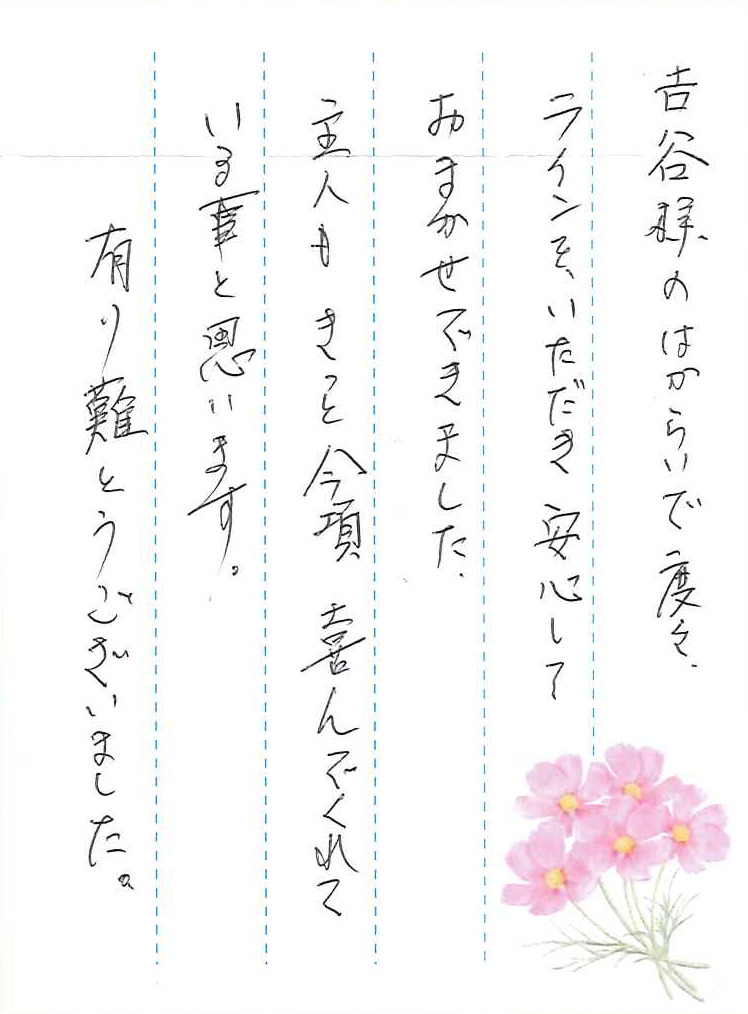 吉谷様のはからいで度々、
ラインを、いただき 安心して
おまかせできました、
主人も きっと 今頃 喜んでくれて
いる事と思います。
有り難とうございました。